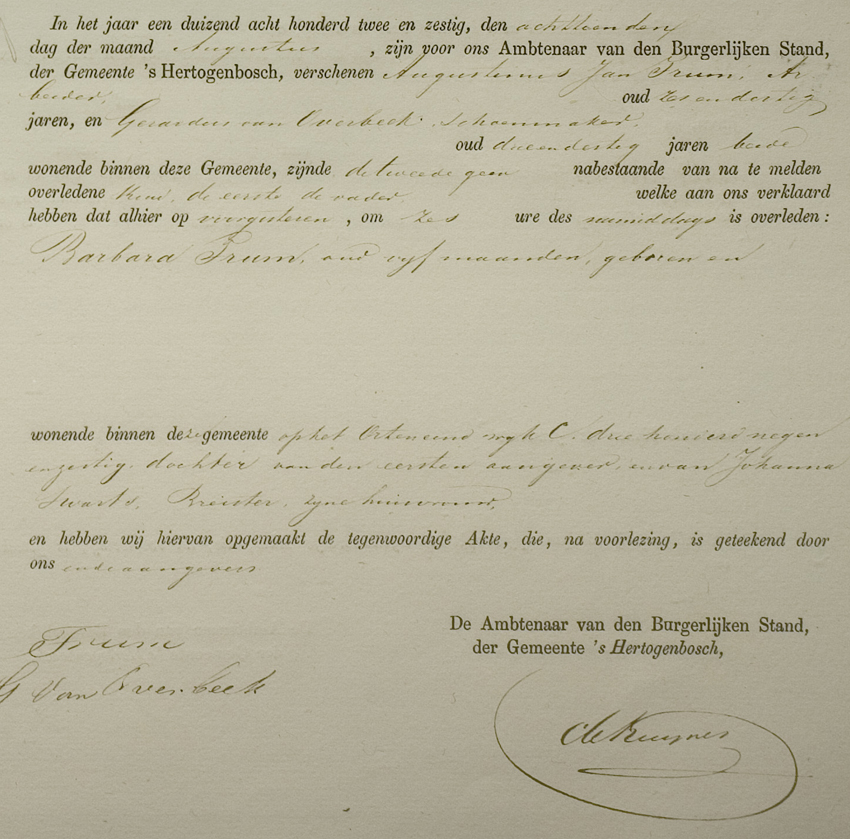 In het jaar een duizend acht honderd twee en zestig, den achttienden
dag der maand Augustus , zijn voor ons Ambtenaar van den Burgerlijken Stand,
der Gemeente 's Hertogenbosch, verschenen Augustinus Jan Trum, Ar
beider, oud zes en dertig
jaren, en Gerardus van Overbeek, Schoenmaker,
oud drie en dertig jaren beide
wonende binnen deze Gemeente, zijnde de tweede geen nabestaande van na te melden
overledene Kind, de eerste de vader, welke aan ons verklaard
hebben dat alhier op eergisteren , om zes ure des namiddags is overleden :
Barbara Trum, oud vijf maanden, geboren en
wonende binnen deze gemeente op het Orteneind wyk C. drie honderd negen
en zestig, dochter van den eersten aangever, en van Johanna
Swarts, Breister, zyne huisvrouw,
en hebben wij hiervan opgemaakt de tegenwoordige Akte, die, na voorlezing, is geteekend door
ons en de aangevers
De Ambtenaar van den Burgerlijken Stand,
der Gemeente 's Hertogenbosch,
Trum
G Van Overbeek